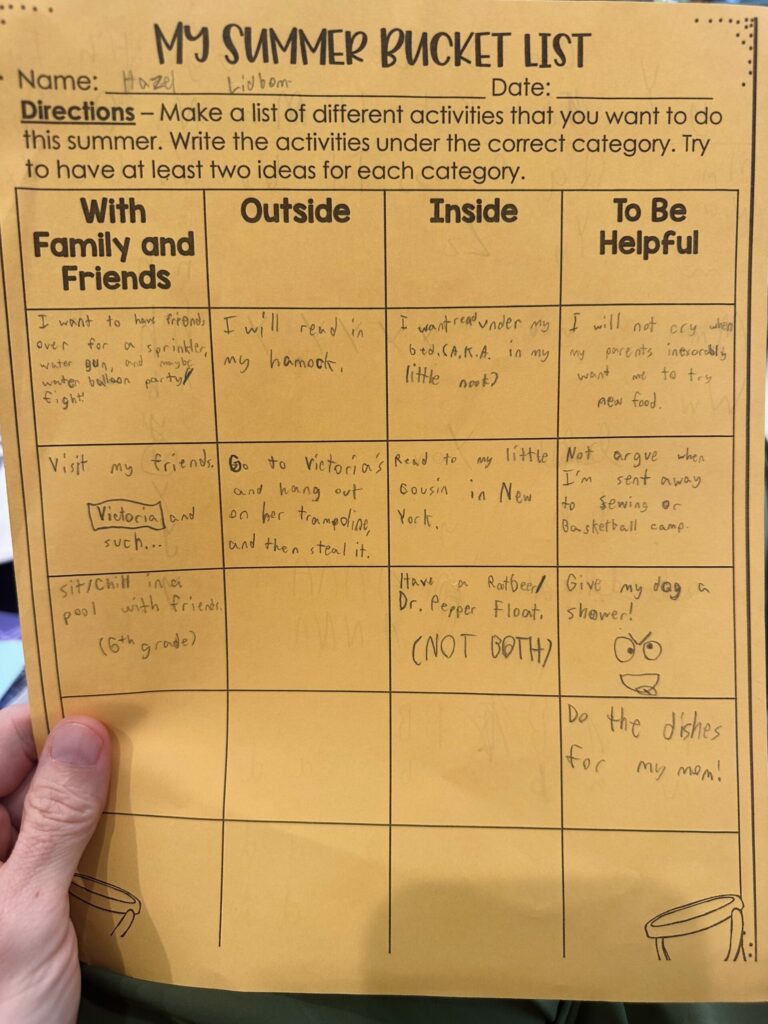 MY SUMMER BUCKET LIST
Name: Hazel Lidbom Date:
Directions – Make a list of different activities that you want to do
this summer. Write the activities under the correct category. Try
to have at least two ideas for each category.
With
Family and
Friends
Outside
Inside
To Be
Helpful
I want to have friends
over for a sprinkler,
water gun, and maybe
water balloon party/
fight!
I will read in
my hamock.
I want read under my
bed. (A.K.A. in my
little nook)
I will not cry when
my parents inexorably
want me to try
new food.
Visit my friends.
Victoria and
such...
Go to Victoria's
and hang out
on her trampoline,
and then steal it.
Read to my little
cousin in New
York.
Not argue when
I'm sent away
to sewing or
Basketball camp.
sit/chill in a
pool with friends.
(6th grade)
Have a Rootbeer/
Dr. Pepper Float.
(NOT BOTH)
Give my dog a
shower!
Do the dishes
for my mom!